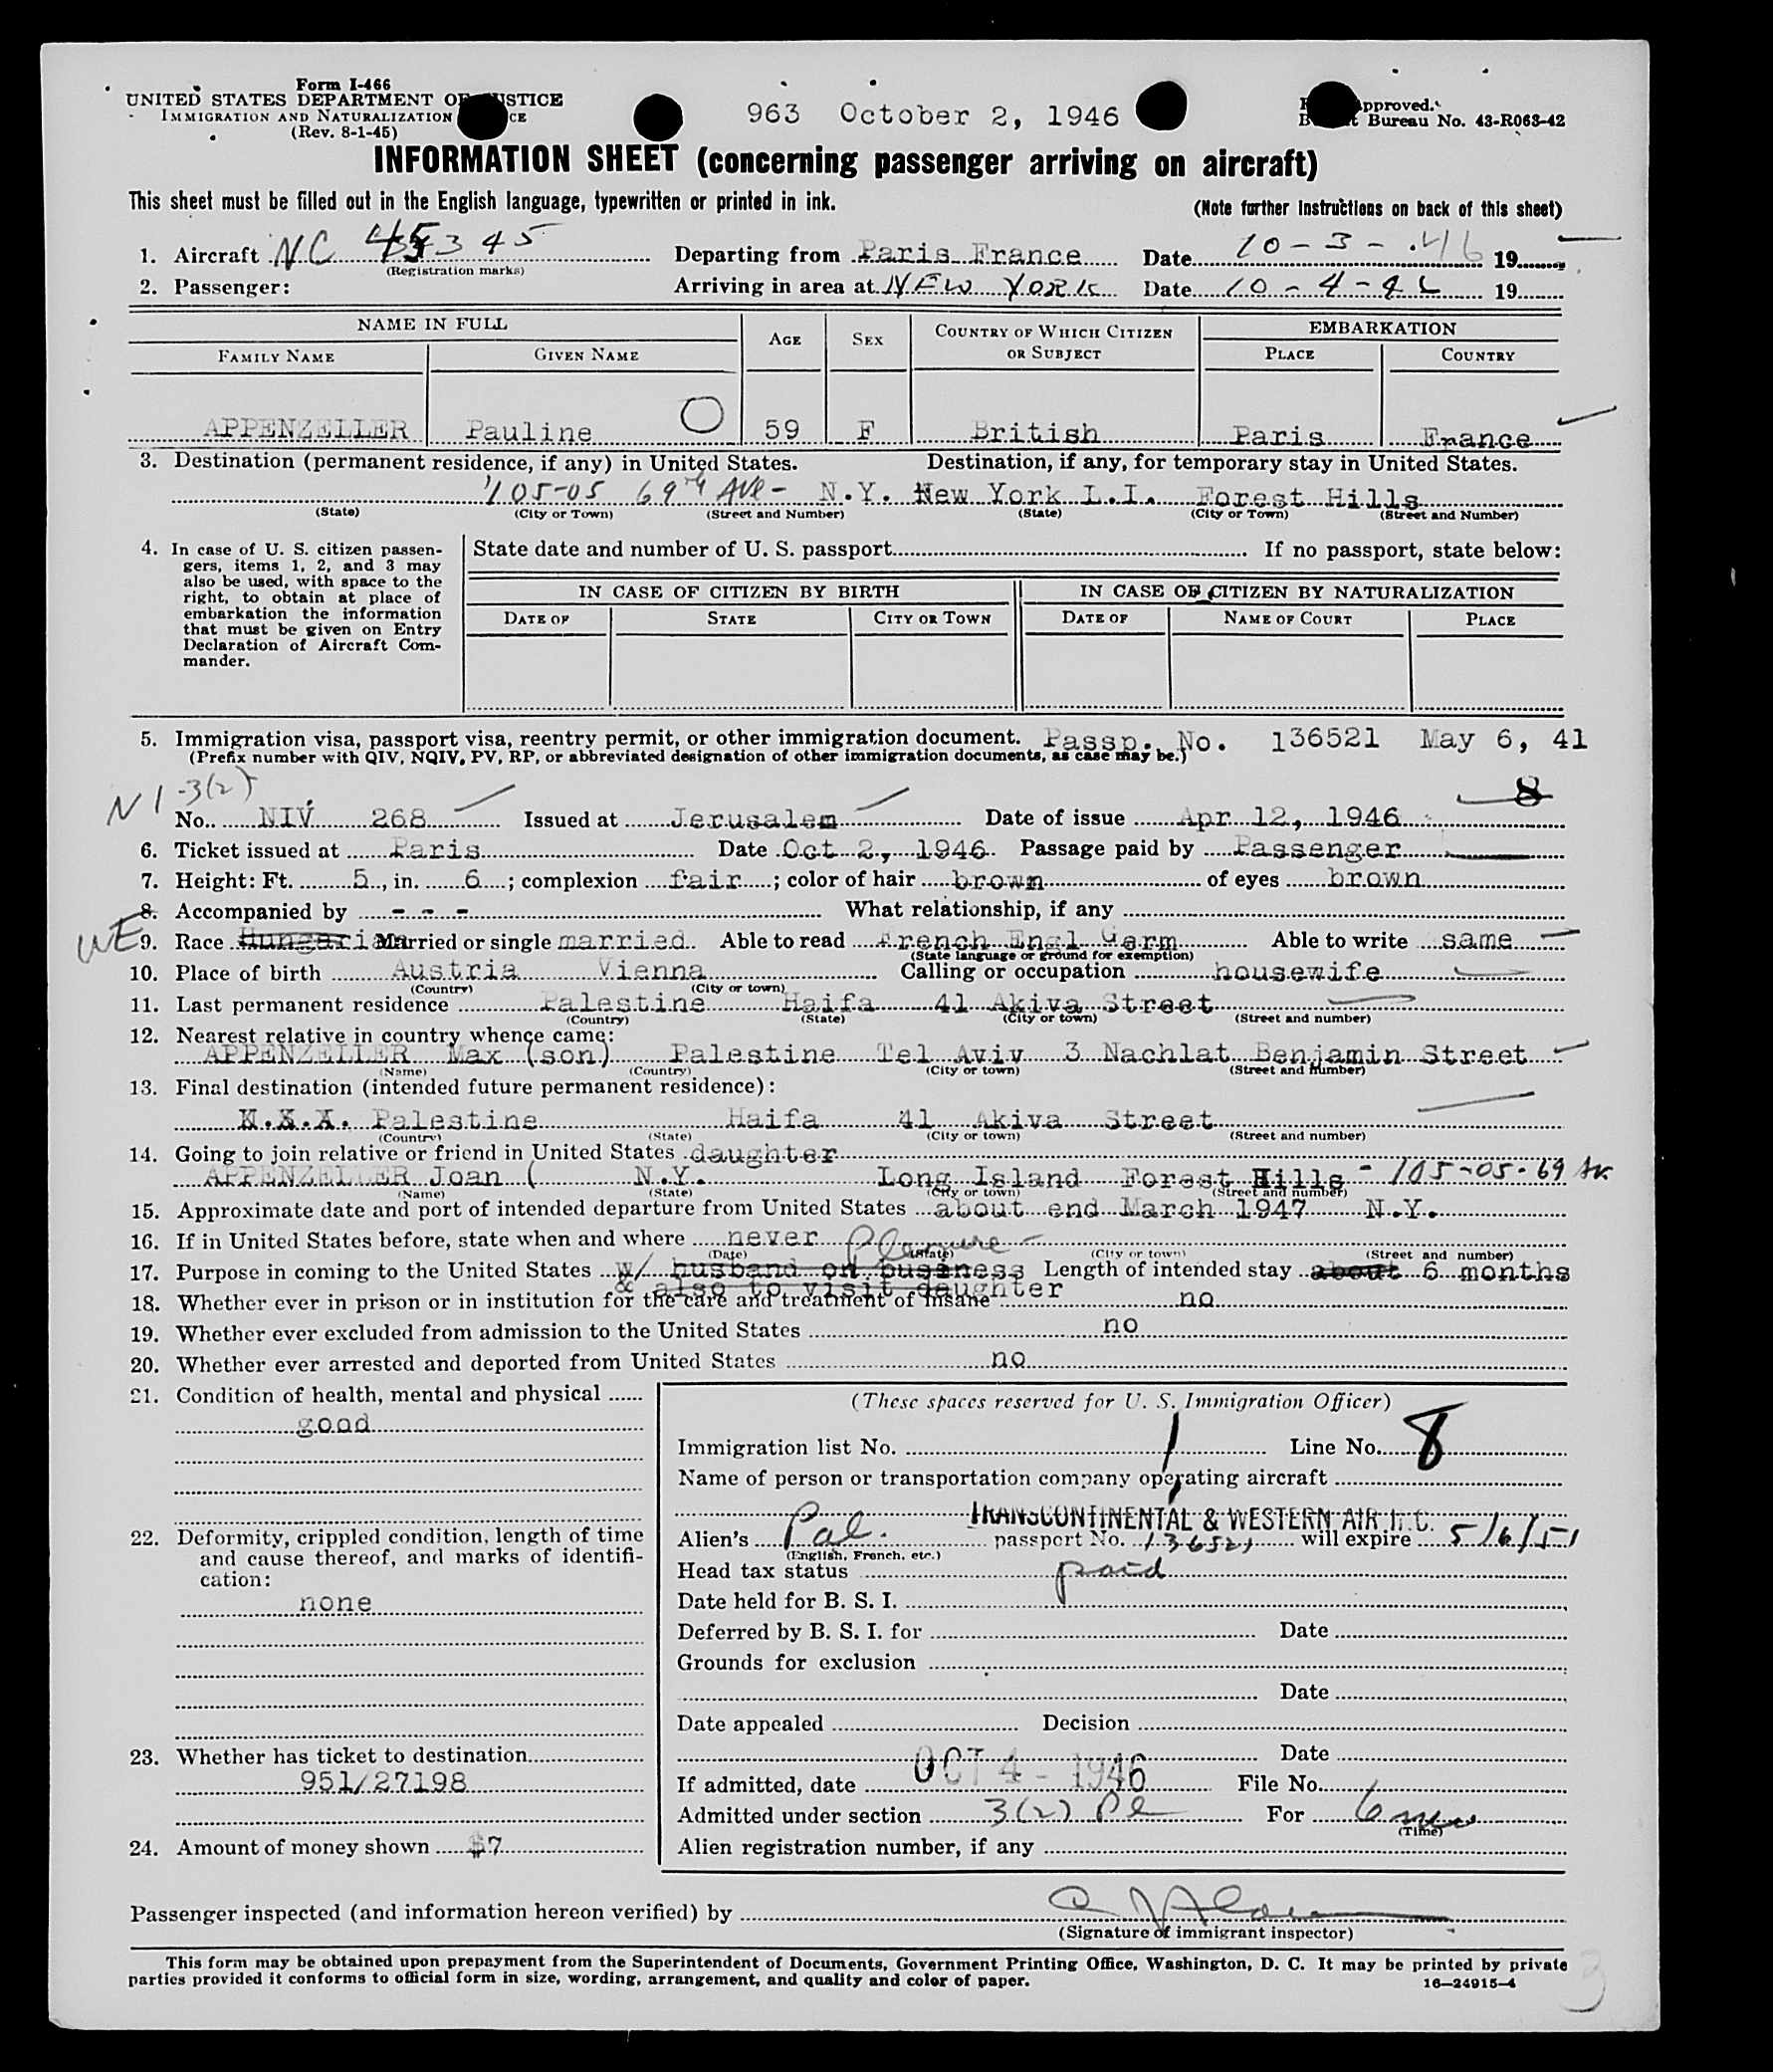 Form I-466
UNITED STATES DEPARTMENT OF JUSTICE
IMMIGRATION AND NATURALIZATION
(Rev. 8-1-45)
963 October 2, 1946
Approved.
Bureau No. 43-R063-42
INFORMATION SHEET (concerning passenger arriving on aircraft)
This sheet must be filled out in the English language, typewritten or printed in ink.
(Note further instructions on back of this sheet)
1. Aircraft NC 45345 Departing from Paris France Date 10-3-46 19
(Registration marks)
2. Passenger: Arriving in area at NEW YORK Date 10-4-46 19
NAME IN FULL AGE SEX COUNTRY OF WHICH CITIZEN OR SUBJECT EMBARKATION
FAMILY NAME GIVEN NAME PLACE COUNTRY
APPENZELLER Pauline 59 F British Paris France
3. Destination (permanent residence, if any) in United States. Destination, if any, for temporary stay in United States.
105-05 69th Ave - N.Y. New York L.I. Forest Hills
(State) (City or Town) (Street and Number) (State) (City or Town) (Street and Number)
4. In case of U. S. citizen passen-
gers, items 1, 2, and 3 may
also be used, with space to the
right, to obtain at place of
embarkation the information
that must be given on Entry
Declaration of Aircraft Com-
mander.
State date and number of U. S. passport If no passport, state below:
IN CASE OF CITIZEN BY BIRTH IN CASE OF CITIZEN BY NATURALIZATION
DATE OF STATE CITY OR TOWN DATE OF NAME OF COURT PLACE
5. Immigration visa, passport visa, reentry permit, or other immigration document. Passp. No. 136521 May 6, 41
(Prefix number with QIV, NQIV, PV, RP, or abbreviated designation of other immigration documents, as case may be.)
N I -3(2) 8
No. NIV 268 Issued at Jerusalem Date of issue Apr 12, 1946
6. Ticket issued at Paris Date Oct 2, 1946. Passage paid by Passenger
7. Height: Ft. 5, in. 6; complexion fair; color of hair brown of eyes brown
8. Accompanied by - - - What relationship, if any
WE 9. Race Hungarian Married or single married Able to read French Engl Germ Able to write same
(State language or ground for exemption)
10. Place of birth Austria Vienna Calling or occupation housewife
(Country) (City or town)
11. Last permanent residence Palestine Haifa 41 Akiva Street
(Country) (State) (City or town) (Street and number)
12. Nearest relative in country whence came:
APPENZELLER Max (son) Palestine Tel Aviv 3 Nachlat Benjamin Street
(Name) (Country) (City or town) (Street and number)
13. Final destination (intended future permanent residence):
Palestine Haifa 41 Akiva Street
(Country) (State) (City or town) (Street and number)
14. Going to join relative or friend in United States daughter
APPENZELLER Joan ( N.Y. Long Island Forest Hills - 105-05-69 Av
(Name) (State) (City or town) (Street and number)
15. Approximate date and port of intended departure from United States about end March 1947 N.Y.
16. If in United States before, state when and where never
(Date) (State) (City or town) (Street and number)
Pleasure -
17. Purpose in coming to the United States w/ husband on business Length of intended stay about 6 months
& also to visit daughter
18. Whether ever in prison or in institution for the care and treatment of insane no
19. Whether ever excluded from admission to the United States no
20. Whether ever arrested and deported from United States no
21. Condition of health, mental and physical
good
22. Deformity, crippled condition, length of time
and cause thereof, and marks of identifi-
cation:
none
23. Whether has ticket to destination
951/27198
24. Amount of money shown $7
(These spaces reserved for U. S. Immigration Officer)
Immigration list No. 1 Line No. 8
Name of person or transportation company operating aircraft
TRANSCONTINENTAL & WESTERN AIR INC.
Alien's Pal. passport No. 136521 will expire 5/6/51
(English, French, etc.)
Head tax status paid
Date held for B. S. I.
Deferred by B. S. I. for Date
Grounds for exclusion
Date
Date appealed Decision
Date
If admitted, date OCT 4 - 1946 File No.
Admitted under section 3(2) Pl For 6 mos
(Time)
Alien registration number, if any
Passenger inspected (and information hereon verified) by
(Signature of immigrant inspector)
This form may be obtained upon prepayment from the Superintendent of Documents, Government Printing Office, Washington, D. C. It may be printed by private
parties provided it conforms to official form in size, wording, arrangement, and quality and color of paper.
16—24915-4
3